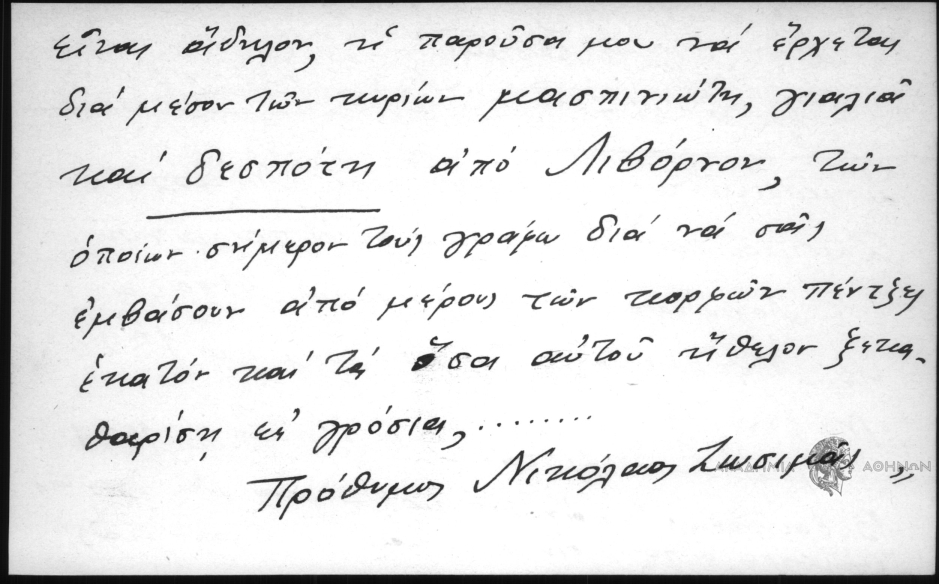 εἶναι ἄδηλον, ἡ παροῦσα μου νά ἔρχεται
διά μέσον τῶν κυρίων μασπινιώτη, γιαλιᾶ
καί δεσπότη ἀπό Λιβόρνον, τῶν
ὁποίων σήμερον τούς γράφω διά νά σᾶς
ἐμβάσουν ἀπό μέρους τῶν κορφῶν πέντ ἕξει
ἑκατόν καί τά ὅσα αὐτοῦ ἤθελον ξεκα-
θαρίση εἰ γρόσια, ........
Πρόθυμος Νικόλαος Ζωσιμᾶς „
ΑΚΑΔΗΜΙΑ ΑΘΗΝΩΝ